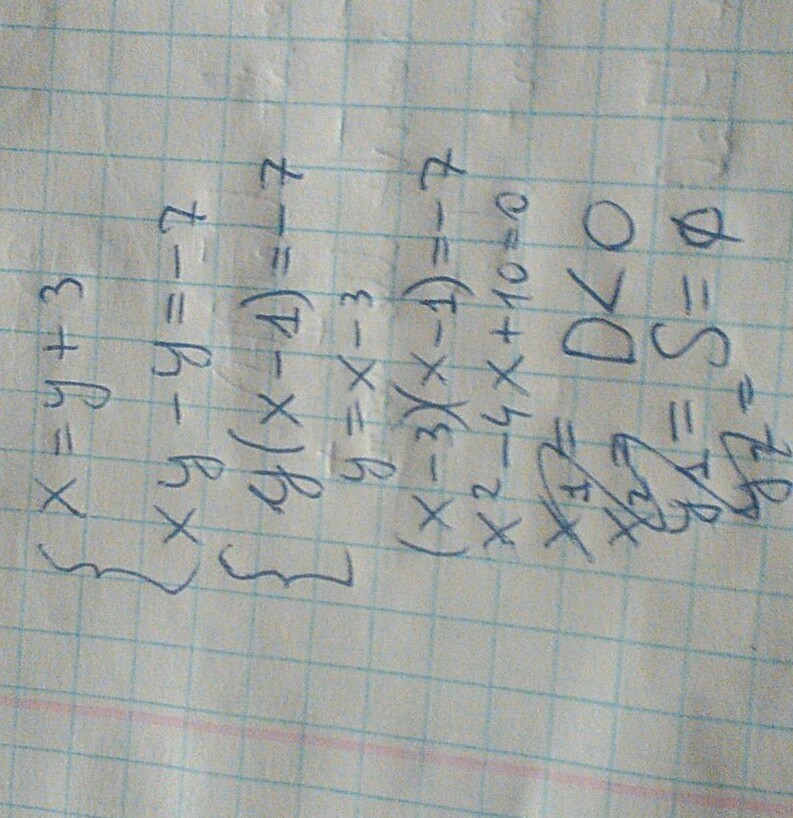 { x = y + 3
xy - y = -7
{ y(x - 1) = -7
y = x - 3
(x - 3)(x - 1) = -7
x² - 4x + 10 = 0
x₁ = D < 0
x₂ =
y₁ = S = ∅
y₂ =